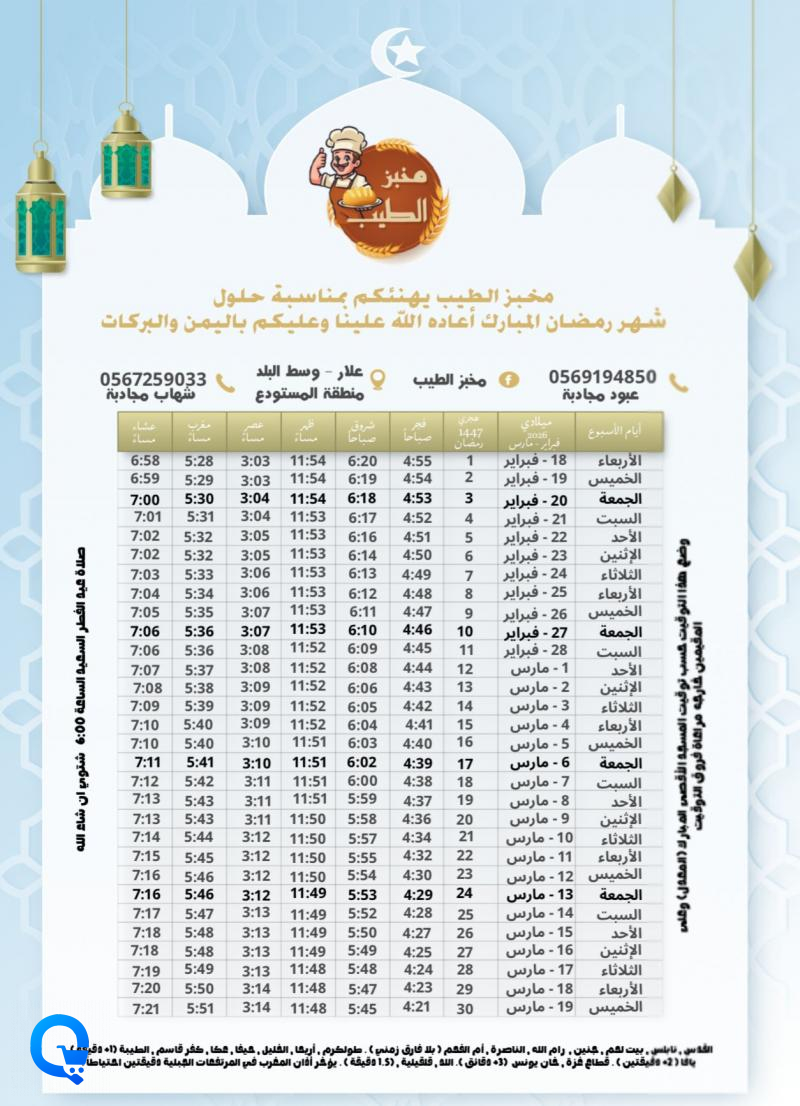 مخبز
الطيب
مخبز الطيب يهنئكم بمناسبة حلول
شهر رمضان المبارك أعاده الله علينا وعليكم باليمن والبركات
0569194850
عبود مجادبة
مخبز الطيب
علار - وسط البلد
منطقة المستودع
0567259033
شهاب مجادبة
أيام الأسبوع ميلادي 2026 فبراير - مارس هجري 1447 رمضان فجر صباحاً شروق صباحاً ظهر مساءً عصر مساءً مغرب مساءً عشاء مساءً
الأربعاء 18 - فبراير 1 4:55 6:20 11:54 3:03 5:28 6:58
الخميس 19 - فبراير 2 4:54 6:19 11:54 3:03 5:29 6:59
الجمعة 20 - فبراير 3 4:53 6:18 11:54 3:04 5:30 7:00
السبت 21 - فبراير 4 4:52 6:17 11:53 3:04 5:31 7:01
الأحد 22 - فبراير 5 4:51 6:16 11:53 3:05 5:32 7:02
الإثنين 23 - فبراير 6 4:50 6:14 11:53 3:05 5:32 7:02
الثلاثاء 24 - فبراير 7 4:49 6:13 11:53 3:06 5:33 7:03
الأربعاء 25 - فبراير 8 4:48 6:12 11:53 3:06 5:34 7:04
الخميس 26 - فبراير 9 4:47 6:11 11:53 3:07 5:35 7:05
الجمعة 27 - فبراير 10 4:46 6:10 11:53 3:07 5:36 7:06
السبت 28 - فبراير 11 4:45 6:09 11:52 3:08 5:36 7:06
الأحد 1 - مارس 12 4:44 6:08 11:52 3:08 5:37 7:07
الإثنين 2 - مارس 13 4:43 6:06 11:52 3:09 5:38 7:08
الثلاثاء 3 - مارس 14 4:42 6:05 11:52 3:09 5:39 7:09
الأربعاء 4 - مارس 15 4:41 6:04 11:52 3:09 5:40 7:10
الخميس 5 - مارس 16 4:40 6:03 11:51 3:10 5:40 7:10
الجمعة 6 - مارس 17 4:39 6:02 11:51 3:10 5:41 7:11
السبت 7 - مارس 18 4:38 6:00 11:51 3:11 5:42 7:12
الأحد 8 - مارس 19 4:37 5:59 11:51 3:11 5:43 7:13
الإثنين 9 - مارس 20 4:36 5:58 11:50 3:11 5:43 7:13
الثلاثاء 10 - مارس 21 4:34 5:57 11:50 3:12 5:44 7:14
الأربعاء 11 - مارس 22 4:32 5:55 11:50 3:12 5:45 7:15
الخميس 12 - مارس 23 4:30 5:54 11:50 3:12 5:46 7:16
الجمعة 13 - مارس 24 4:29 5:53 11:49 3:12 5:46 7:16
السبت 14 - مارس 25 4:28 5:52 11:49 3:13 5:47 7:17
الأحد 15 - مارس 26 4:27 5:50 11:49 3:13 5:48 7:18
الإثنين 16 - مارس 27 4:25 5:49 11:49 3:13 5:48 7:18
الثلاثاء 17 - مارس 28 4:24 5:48 11:48 3:13 5:49 7:19
الأربعاء 18 - مارس 29 4:23 5:47 11:48 3:14 5:50 7:20
الخميس 19 - مارس 30 4:21 5:45 11:48 3:14 5:51 7:21
وضع هذا التوقيت حسب توقيت المسجد الأقصى المبارك (المعدل) وعلى
المقيمين خارجه مراعاة فروق التوقيت
صلاة عيد الفطر السعيد الساعة 6:00 شتوي ان شاء الله
القدس , نابلس , بيت لحم , جنين , رام الله , الناصرة , أم الفحم ( بلا فارق زمني ) . طولكرم , أريحا , الخليل , حيفا , عكا , كفر قاسم , الطيبة (1+ دقيقة) .
يافا (2+ دقيقتين) . قطاع غزة , خان يونس (3+ دقائق) . اللد , قلقيلية , (1.5 دقيقة) . يؤخر أذان المغرب في المرتفعات الجبلية دقيقتين احتياطا